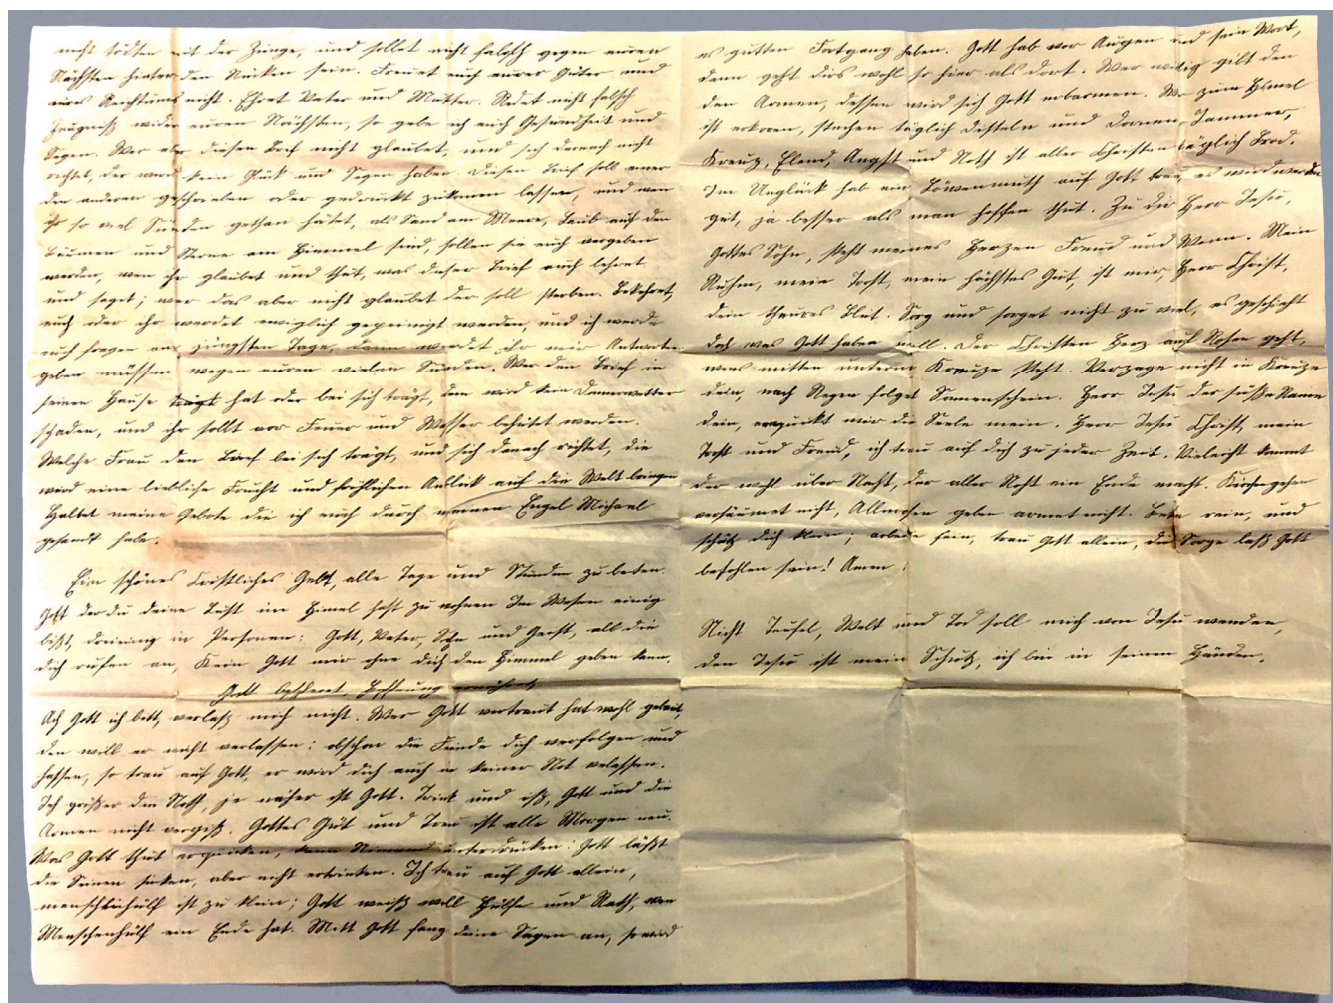 nicht tödten mit der Zunge, und sollet nicht falsch gegen euren
Nächsten hinter den Rücken sein. Freuet euch eurer Güter und
eures Reichtums nicht. Ehret Vater und Mutter. Redet nicht falsch
Zeugniß wider euren Nächsten, so gebe ich euch Gesundheit und
Segen. Wer aber diesen Brief nicht glaubet, und sich darnach nicht
richtet, der wird kein Glük und Segen haben. Diesen Brief soll einer
den anderen geschrieben oder gedruckt zukomen lassen, und wen
ihr so viel Sünden gethan hätet, als Sand am Meere, Laub auf den
Bäumen und Sterne am Himmel sind, sollen sie euch vergeben
werden, wen ihr glaubet und thut, was dieser Brief euch lehret
und saget; wer das aber nicht glaubet der soll sterben. Bekehret,
euch oder ihr werdet ewiglich gepeinigt werden, und ich werde
euch fragen am jüngsten Tage, dann werdet ihr mir Antworte
geben müssen wegen euren vielen Sünden. Wer den Brief in
seinen Hause hat oder bei sich trägt, dem wird kein Donnerwetter
schaden, und ihr sollt vor Feuer und Wasser behütet werden.
Welche Frau den Brief bei sich trägt, und sich danach richtet, die
wird eine liebliche Frucht und fröhlichen Anblik auf die Welt bringen
Haltet meine Gebote die ich euch durch meinen Engel Michael
gesandt habe.
Ein schönes Kristliches Gebt, alle Tage und Stunden zu beten.
Gott der du deine Lust im Himel hast zu wohnen Im Wesen einig
bist, dreieinig in Personen: Gott, Vater, Sohn und Geist, all die
dich rufen an, Kein Gott mir ohne dich den Himmel geben kann.
Gott bescheret, Hoffnung ernähret,
Ach Gott ich bitt, verlaß mich nicht. Wer Gott vertraut hat wohl gebaut,
den will er nicht verlassen: obschon die Feinde dich verfolgen und
hassen, so trau auf Gott, er wird dich auch in keiner Not velassen.
Jeh größer die Noth, je näher ist Gott. Trink und iß, Gott und die
Armen nicht vergiß. Gottes Güt und Treu ist alle Morgen neu.
Was Gott thut erquicken, kann Niemand unterdrücken: Gott läßt
die Seinen sinken, aber nicht ertrinken. Ich trau auf Gott allein,
menschheihülf ist zu klein; Gott weiß woll Hülfe und Rath, wen
Menschenhülf ein Ende hat. Mitt Gott fang deine Sagen an, so wird
es gutten Fortgang haben. Gott hab vor Augen und sein Wort,
dann geht dirs wohl so hier als dort. Wer willig gibt den
den Armen, dessen wird sich Gott erbarmen. Wer zum Himel
ist erkoren, stechen täglich Disteln und Dornen, Jammer,
Kreuz, Elend, Angst und Noth ist aller Christen täglich Brod.
Im Unglück hab ein Löwenmuth auf Gott trau, es wird werden
gut, ja besser als man hoffen thut. Zu dir Herr Jesu,
Gottes Sohn, steht meines Herzen Freud und Wonn. Mein
Ruhm, mein Trost, mein höchstes Gut, ist mir Herr Christ,
dein theures Blut. Sorg und sorget nicht zu viel, es geschieht
doch was Gott haben will. Der Christen Herz auf Rosen geht,
wens mitten unterm Kreuze steht. Verzage nicht in Kreuze
dein, nach Regen folget Sonnenschein. Herr Jesu der süße Name
dein, erquikt mir die Seele mein. Herr Jesu Christ, mein
Trost und Freud, ich trau auf dich zu jeder Zeit. Vieleicht kommt
der wohl über Nacht, der aller Noht ein Ende macht. Kirchegehen
versäumet nicht, Allmosen geben armet nicht. Bete rein, und
schätz dich klein; arbeite fein, trau Gott allein, die Sorge laß Gott
befohlen sein! Amen:
Nicht Teufel, Welt und Tod soll mich von Jesu wenden,
den Jesus ist mein Schutz, ich bin in seinen Händen.